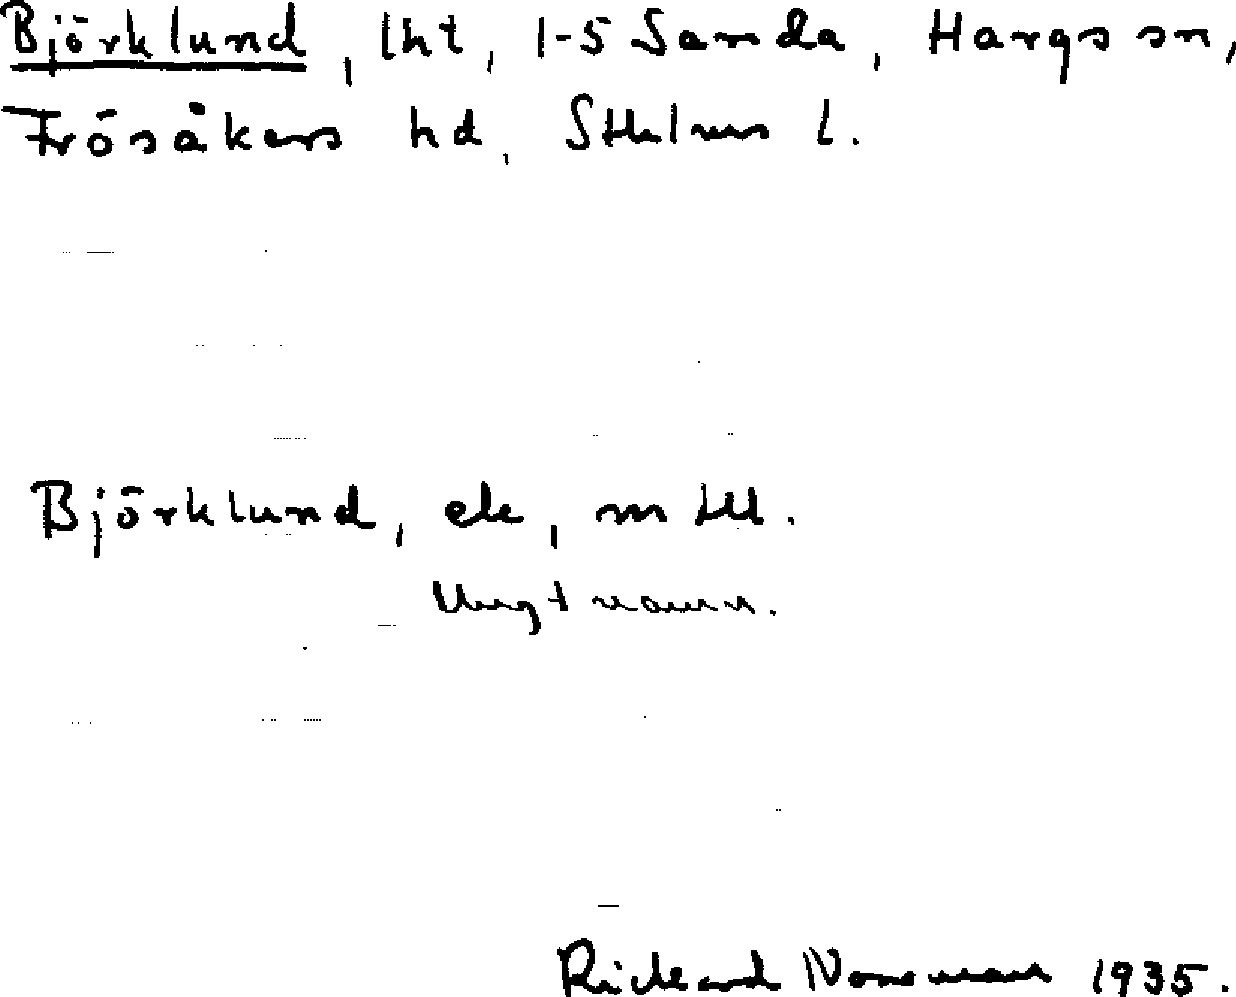 Björklund, lht, 1-5 Sanda, Hargs sn,
Frösåkers hd, Sthlms l.
Björklund, ek, m fll.
Ungt namn.
Rickard Norsman 1935.